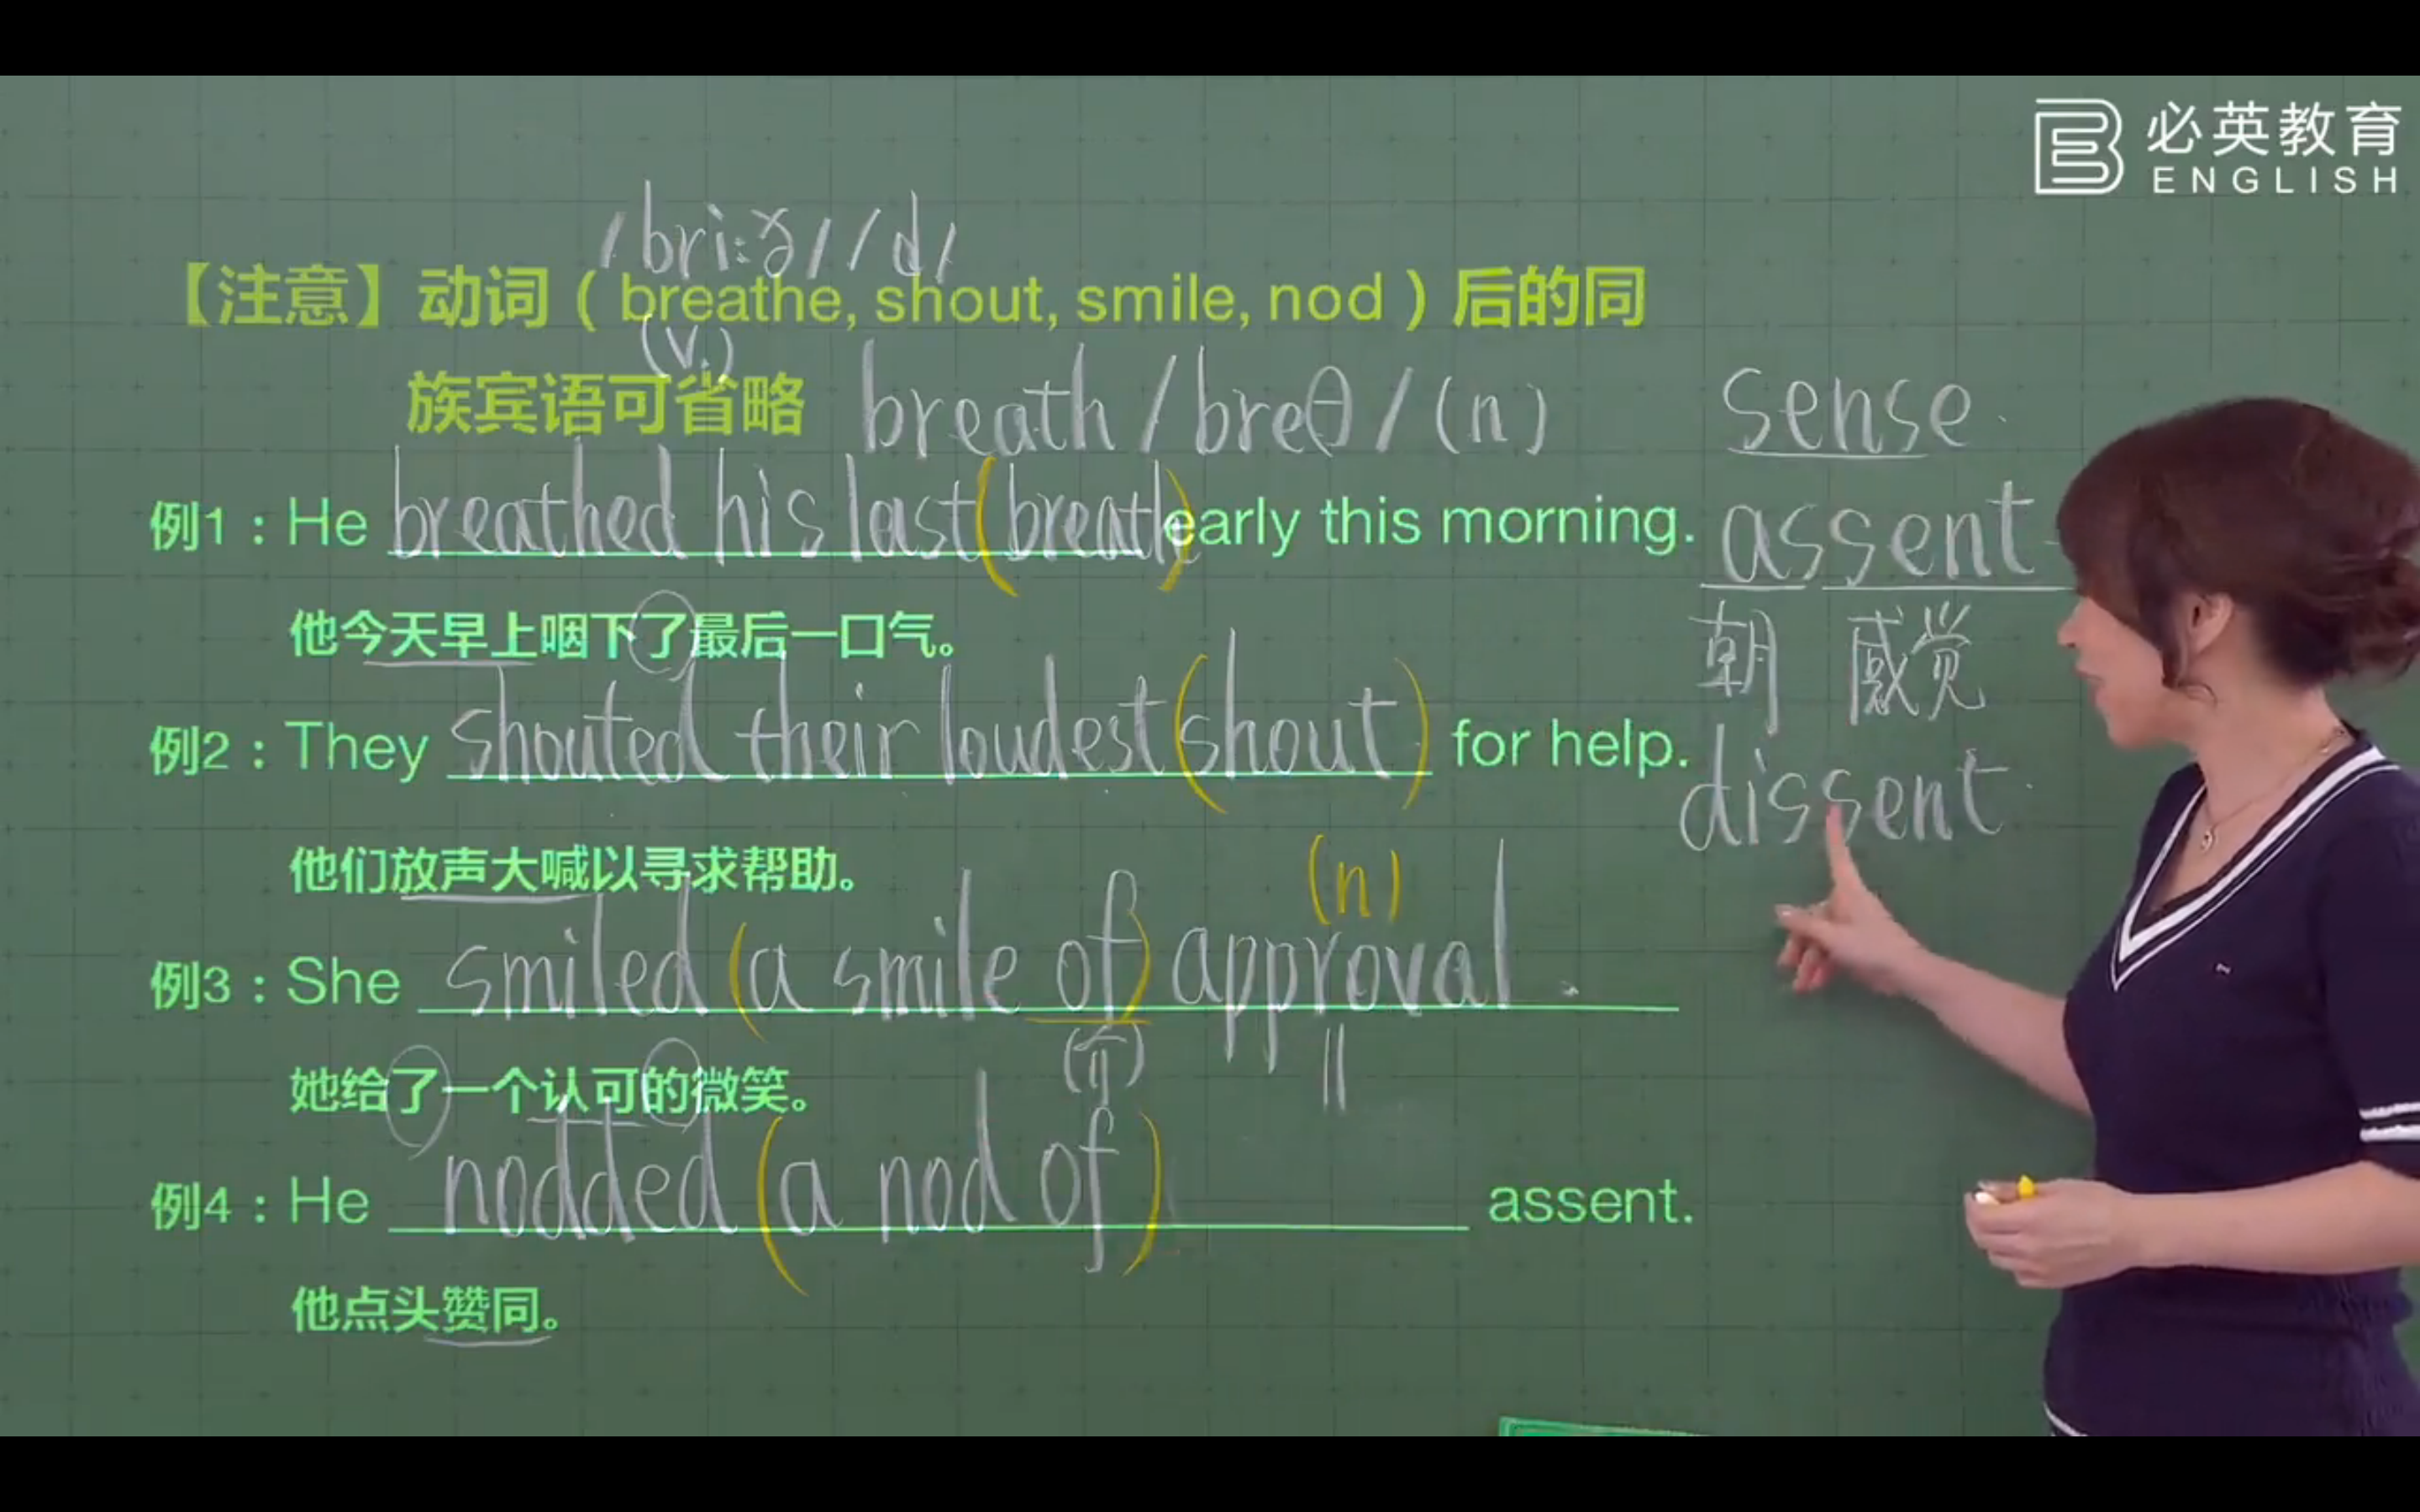 必英教育
ENGLISH
/bri:ð/ /d/
【注意】动词（breathe, shout, smile, nod）后的同
(v.)
族宾语可省略 breath /breθ/ (n)
sense.
例1：He breathed his last (breath) early this morning.
assent
朝 感觉
他今天早上咽下了最后一口气。
例2：They shouted their loudest (shout) for help.
dissent
他们放声大喊以寻求帮助。
(n)
例3：She smiled (a smile of) approval.
(介)
她给了一个认可的微笑。
例4：He nodded (a nod of) assent.
他点头赞同。